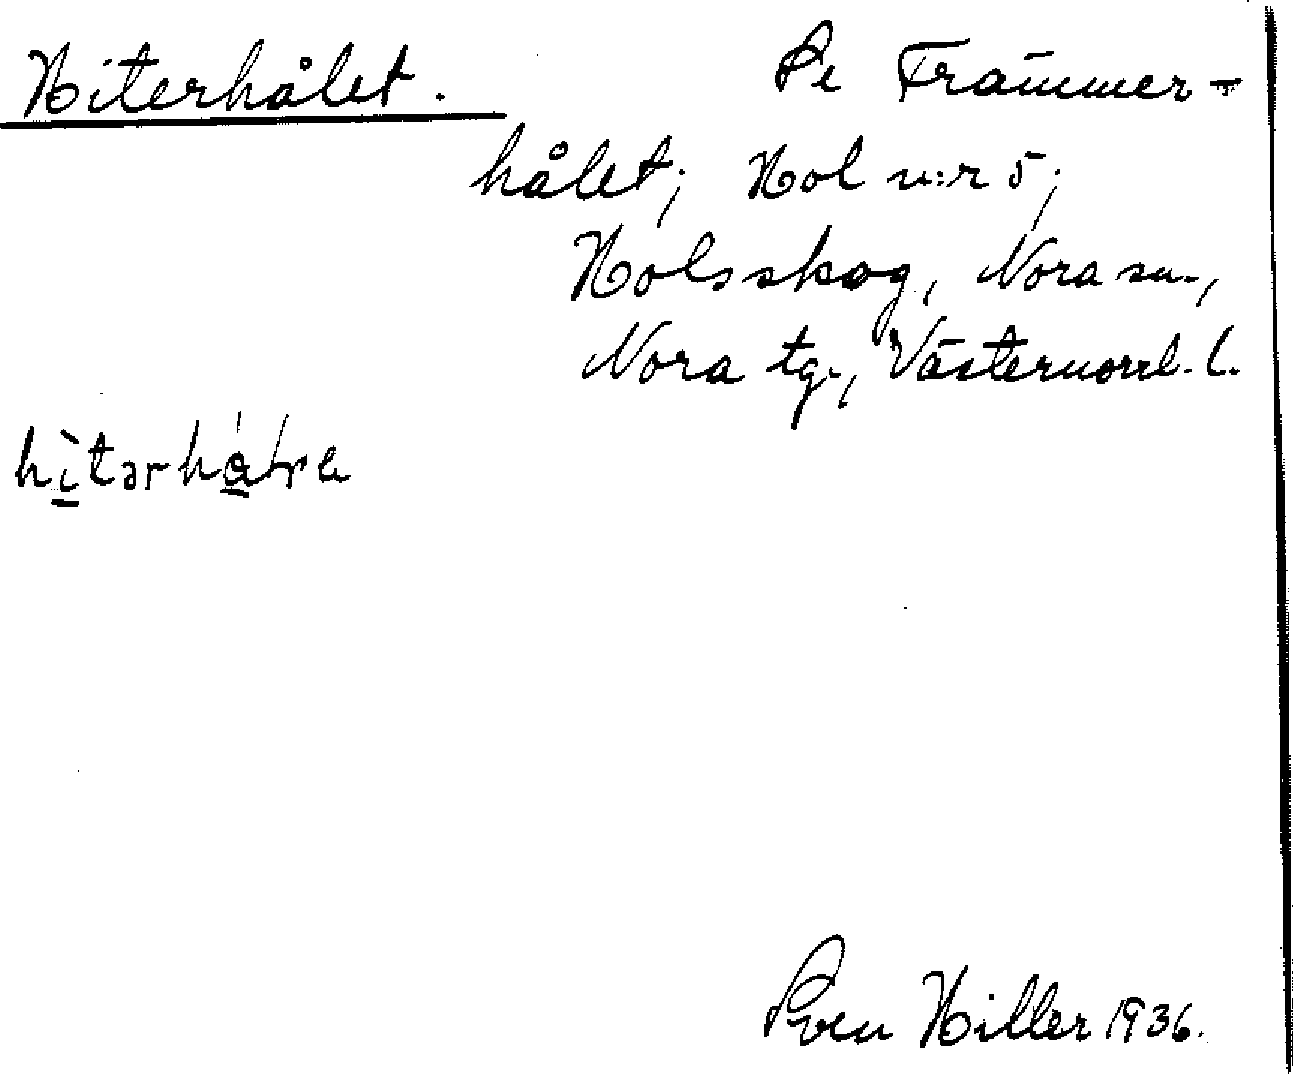 Hiterhålet. Se Främmer-
hålet; Hol n:r 5;
Holsskog, Nora sn.,
Nora tg., Västernorrl. l.
Sven Hiller 1936.